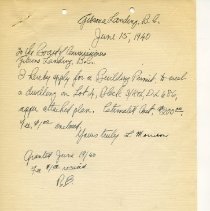 Gibsons Landing, B.C.
June 15, 1940
To the Board of Commissioners
Gibsons Landing, B.C.
I hereby apply for a Building Permit to erect
a dwelling on Lot 4, Block D.L. 686,
as per attached plan. Estimated Cost,
Fee, $1.00 enclosed.
Yours truly
Granted June 19/40
Fee $1.00 received